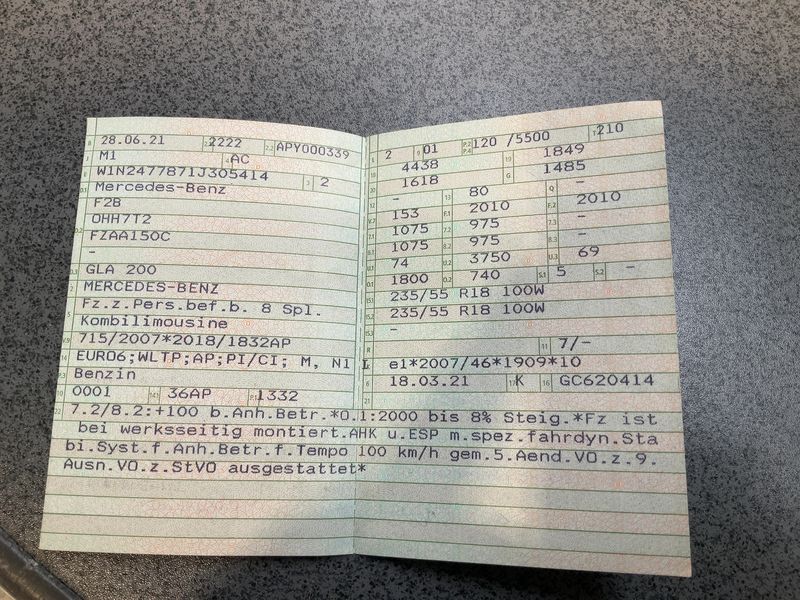 28.06.21 2222 APY000339
M1 AC
W1N2477871J305414 2
Mercedes-Benz
F2B
OHH7T2
FZAA150C
-
GLA 200
MERCEDES-BENZ
Fz.z.Pers.bef.b. 8 Spl.
Kombilimousine
715/2007*2018/1832AP
EURO6;WLTP;AP;PI/CI; M, N1 I
Benzin
0001 36AP 1332
2 01 120 /5500 210
4438 1849
1618 G 1485
- 80 Q -
153 2010 2010
1075 975 -
1075 975 -
74 3750 69
1800 740 5 -
235/55 R18 100W
235/55 R18 100W
-
R 11 7/-
e1*2007/46*1909*10
6 18.03.21 17 K 16 GC620414
21
22 7.2/8.2:+100 b.Anh.Betr.*0.1:2000 bis 8% Steig.*Fz ist
bei werksseitig montiert.AHK u.ESP m.spez.fahrdyn.Sta
bi.Syst.f.Anh.Betr.f.Tempo 100 km/h gem.5.Aend.VO.z.9.
Ausn.VO.z.StVO ausgestattet*